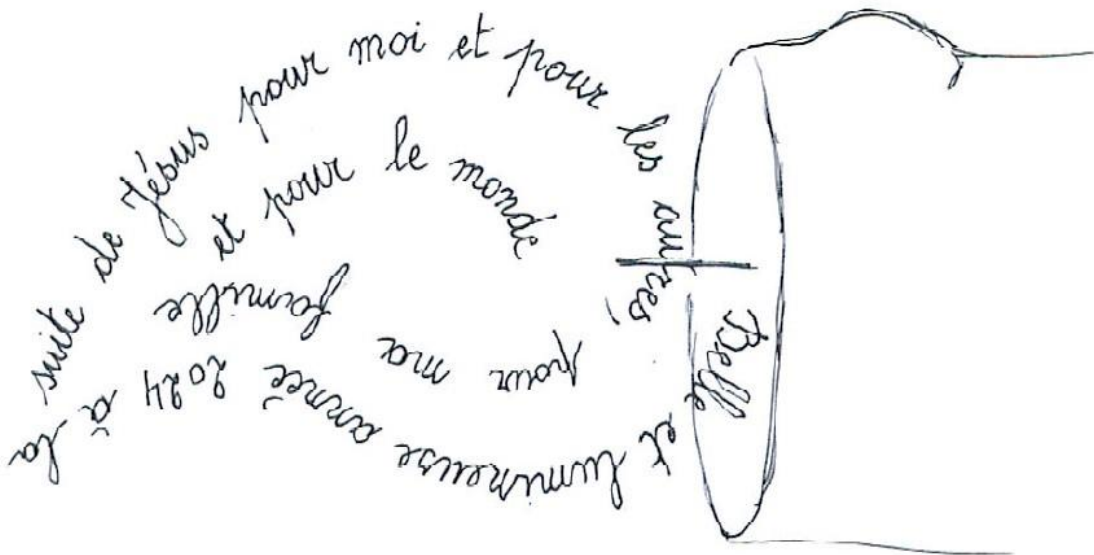 Belle et lumineuse année 2024 à la suite de Jésus pour moi et pour les autres, pour ma famille et pour le monde